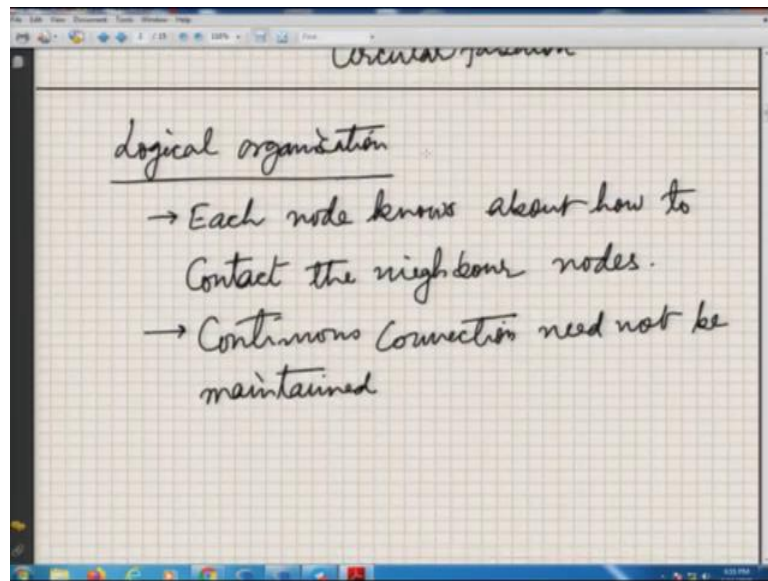 File Edit View Document Tools Window Help
Circular fashion
Logical organisation
→ Each node knows about how to
Contact the nieghbour nodes.
→ Continuous Connection need not be
maintained